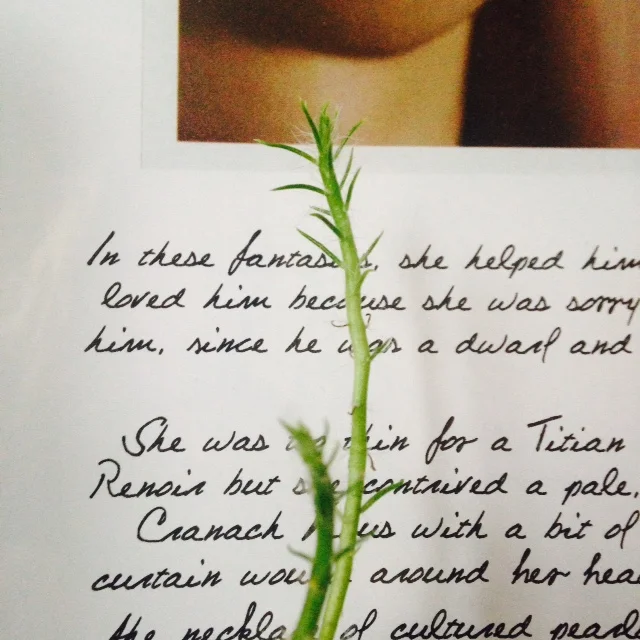 In these fantasies, she helped him
loved him because she was sorry
him, since he was a dwarf and
She was too thin for a Titian
Renoir but she contrived a pale,
Cranach Venus with a bit of
curtain wound around her head
the necklace of cultured pearl